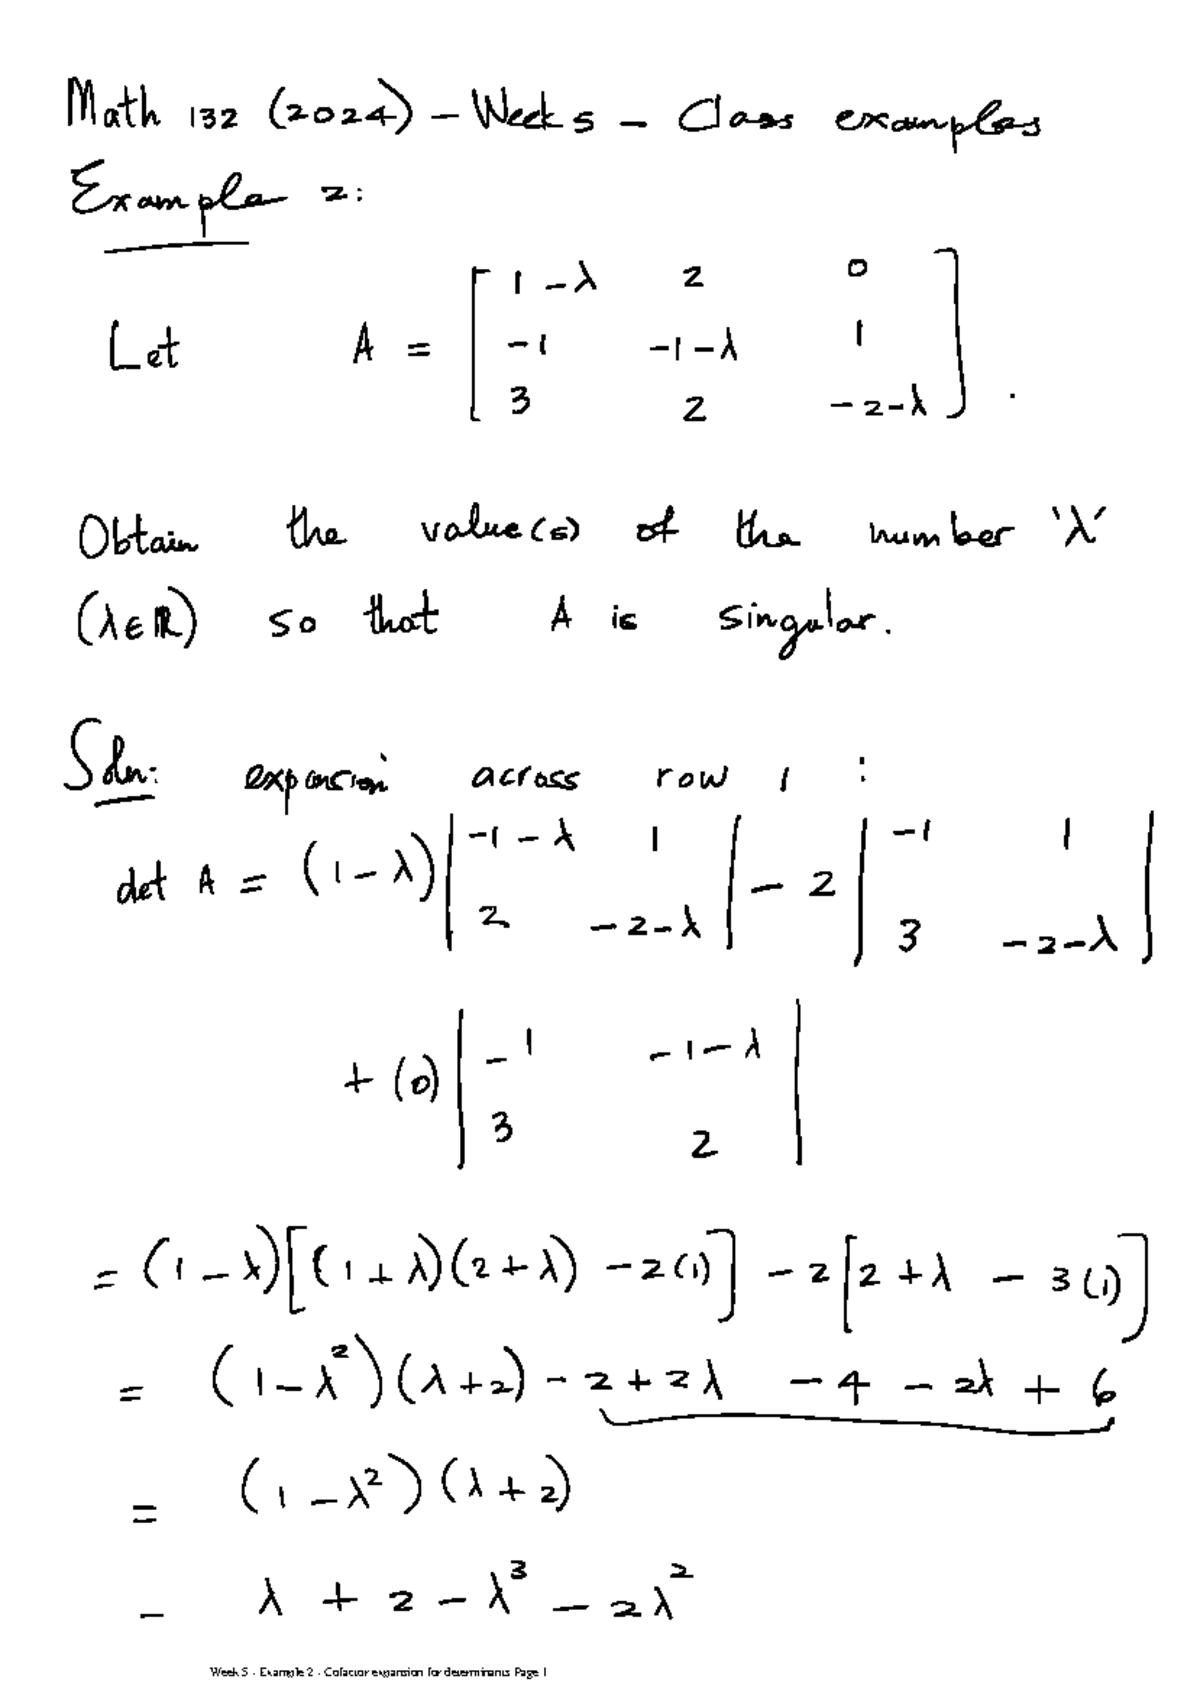 Math 132 (2024) – Week 5 – Class examples
Example 2:
Let A = [ 1-λ 2 0
-1 -1-λ 1
3 2 -2-λ ] .
Obtain the value(s) of the number 'λ'
(λ∈ℝ) so that A is singular.
Soln: expansion across row 1 :
det A = (1-λ) | -1-λ 1 | - 2 | -1 1 |
| 2 -2-λ | | 3 -2-λ |
+ (0) | -1 -1-λ |
| 3 2 |
= (1-λ)[(1+λ)(2+λ) -2(1)] -2[2+λ - 3(1)]
= (1-λ²)(λ+2) -2+2λ -4 -2λ + 6
= (1-λ²)(λ+2)
– λ + 2 - λ³ - 2λ²
Week 5 - Example 2 - Cofactor expansion for determinants Page 1